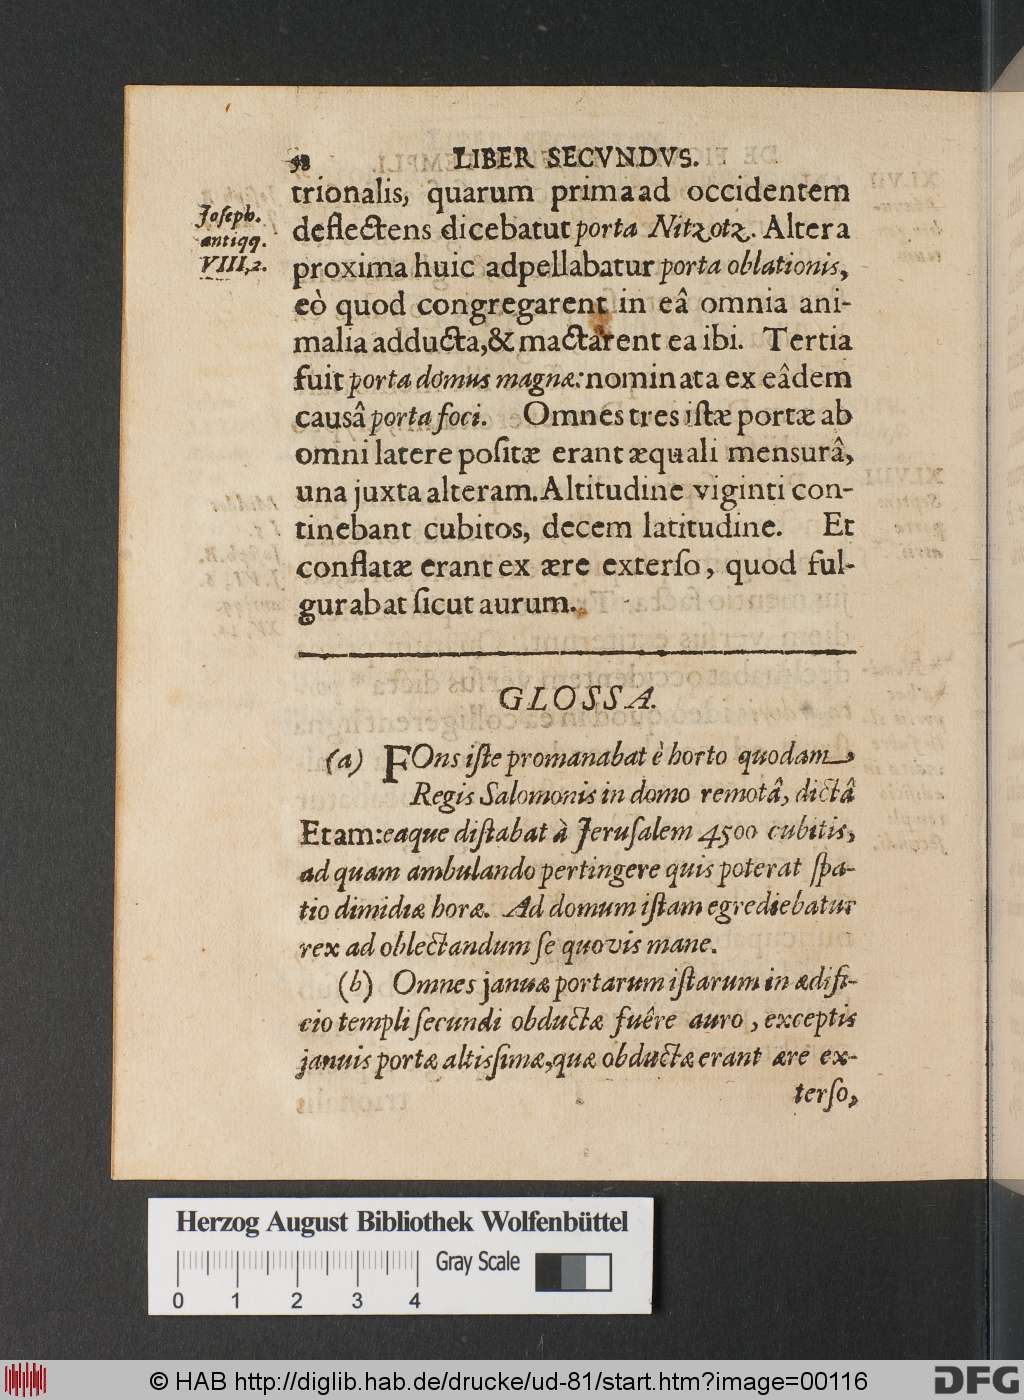 98 LIBER SECVNDVS.
trionalis, quarum prima ad occidentem
deflectens dicebatut porta Nitzotz. Altera
proxima huic adpellabatur porta oblationis,
eò quod congregarent in eâ omnia ani-
malia adducta, & mactarent ea ibi. Tertia
fuit porta domus magnæ: nominata ex eâdem
causâ porta foci. Omnes tres istæ portæ ab
omni latere positæ erant æquali mensurâ,
una juxta alteram. Altitudine viginti con-
tinebant cubitos, decem latitudine. Et
conflatæ erant ex ære exterso, quod ful-
gurabat sicut aurum.
Joseph.
antiqq.
VIII,2.
GLOSSA.
(a) FOns iste promanabat è horto quodam
Regis Salomonis in domo remotâ, dictâ
Etam: eaque distabat à Jerusalem 4500 cubitis,
ad quam ambulando pertingere quis poterat spa-
tio dimidiæ horæ. Ad domum istam egrediebatur
rex ad oblectandum se quovis mane.
(b) Omnes januæ portarum istarum in ædifi-
cio templi secundi obductæ fuêre auro, exceptis
januis portæ altissimæ, quæ obductæ erant ære ex-
terso,
Herzog August Bibliothek Wolfenbüttel
Gray Scale
0 1 2 3 4
© HAB http://diglib.hab.de/drucke/ud-81/start.htm?image=00116
DFG